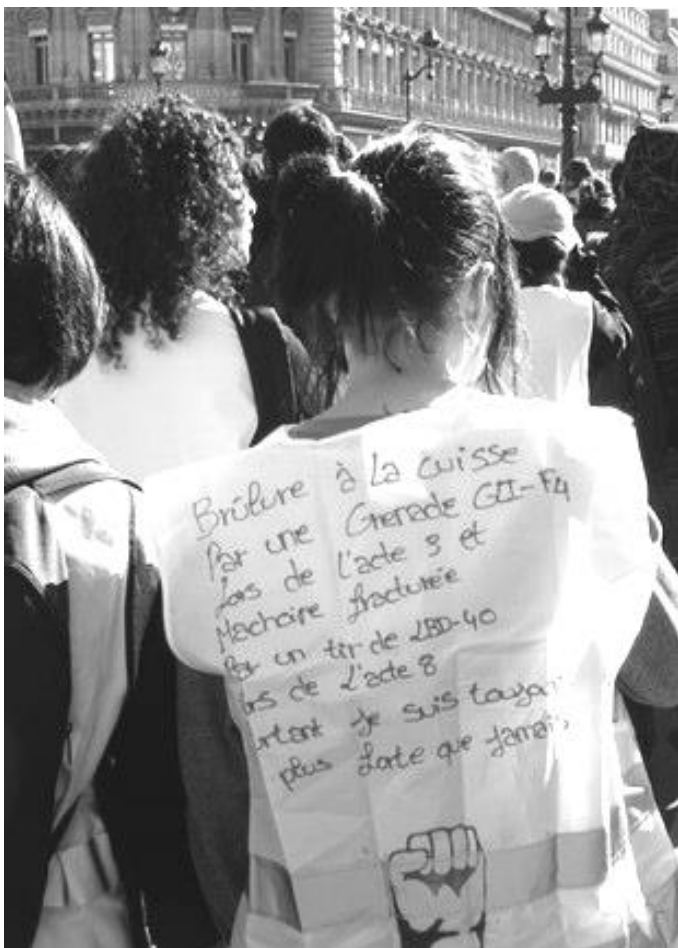 Brûlure à la cuisse
Par une Grenade GLI-F4
Lors de l'acte 3 et
Machoire fracturée
Par un tir de LBD-40
ors de L'acte 8
urtant je suis toujour
plus forte que jamais